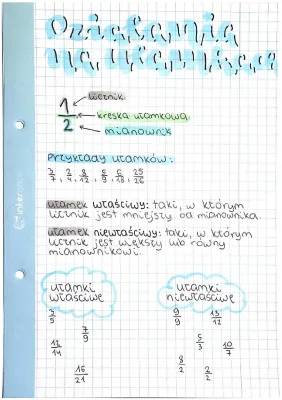 Działania
na ułamkach
1/2
licznik
kreska ułamkowa
mianownik
Przykłady ułamków:
ułamek właściwy: taki, w którym
licznik jest mniejszy od mianownika.
ułamek niewłaściwy: taki, w którym
licznik jest większy lub równy
mianownikowi.
ułamki
właściwe
ułamki
niewłaściwe
3/5
7/9
12/14
16/21
9/9
13/12
5/3
10/7
8/2
2/2